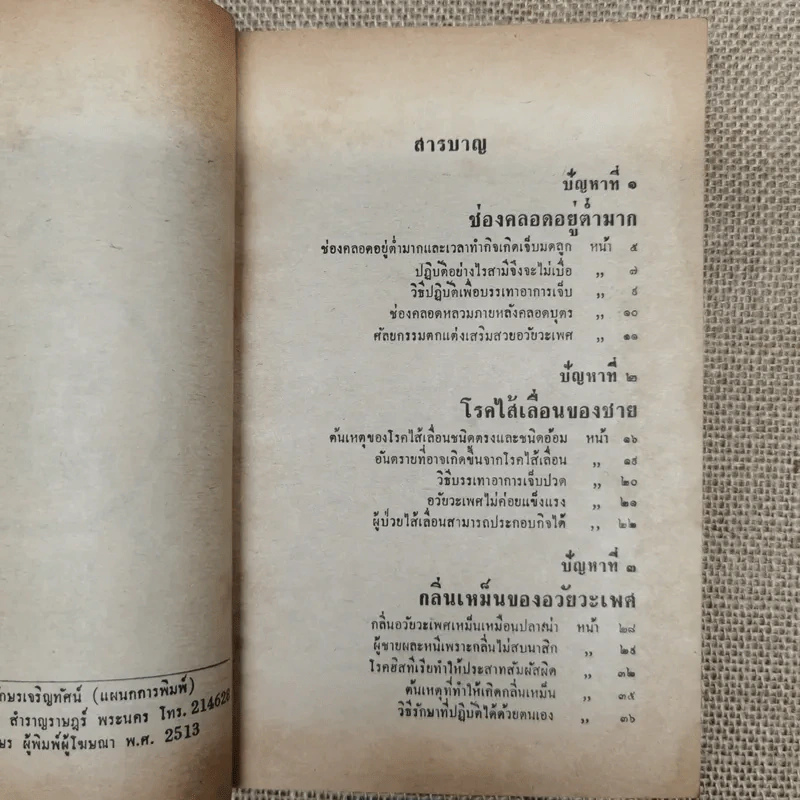 ักษรเจริญทัศน์ (แผนกการพิมพ์)
สำราญราษฎร์ พระนคร โทร. 214628
ผู้พิมพ์ผู้โฆษณา พ.ศ. 2513
สารบาญ
ปัญหาที่ ๑
ช่องคลอดอยู่ต่ำมาก
ช่องคลอดอยู่ต่ำมากและเวลาทำกิจเกิดเจ็บมดลูก หน้า ๕
ปฏิบัติอย่างไรสามีจึงจะไม่เบื่อ ,, ๗
วิธีปฏิบัติเพื่อบรรเทาอาการเจ็บ ,, ๙
ช่องคลอดหลวมภายหลังคลอดบุตร ,, ๑๐
ศัลยกรรมตกแต่งเสริมสวยอวัยวะเพศ ,, ๑๑
ปัญหาที่ ๒
โรคไส้เลื่อนของชาย
ต้นเหตุของโรคไส้เลื่อนชนิดตรงและชนิดอ้อม หน้า ๑๖
อันตรายที่อาจเกิดขึ้นจากโรคไส้เลื่อน ,, ๑๙
วิธีบรรเทาอาการเจ็บปวด ,, ๒๐
อวัยวะเพศไม่ค่อยแข็งแรง ,, ๒๑
ผู้ป่วยไส้เลื่อนสามารถประกอบกิจได้ ,, ๒๒
ปัญหาที่ ๓
กลิ่นเหม็นของอวัยวะเพศ
กลิ่นอวัยวะเพศเหม็นเหมือนปลาเน่า หน้า ๒๘
ผู้ชายผละหนีเพราะกลิ่นไม่สบนาสิก ,, ๒๙
โรคฮิสทีเรียทำให้ประสาทสัมผัสผิด ,, ๓๒
ต้นเหตุที่ทำให้เกิดกลิ่นเหม็น ,, ๓๕
วิธีรักษาที่ปฏิบัติได้ด้วยตนเอง ,, ๓๖